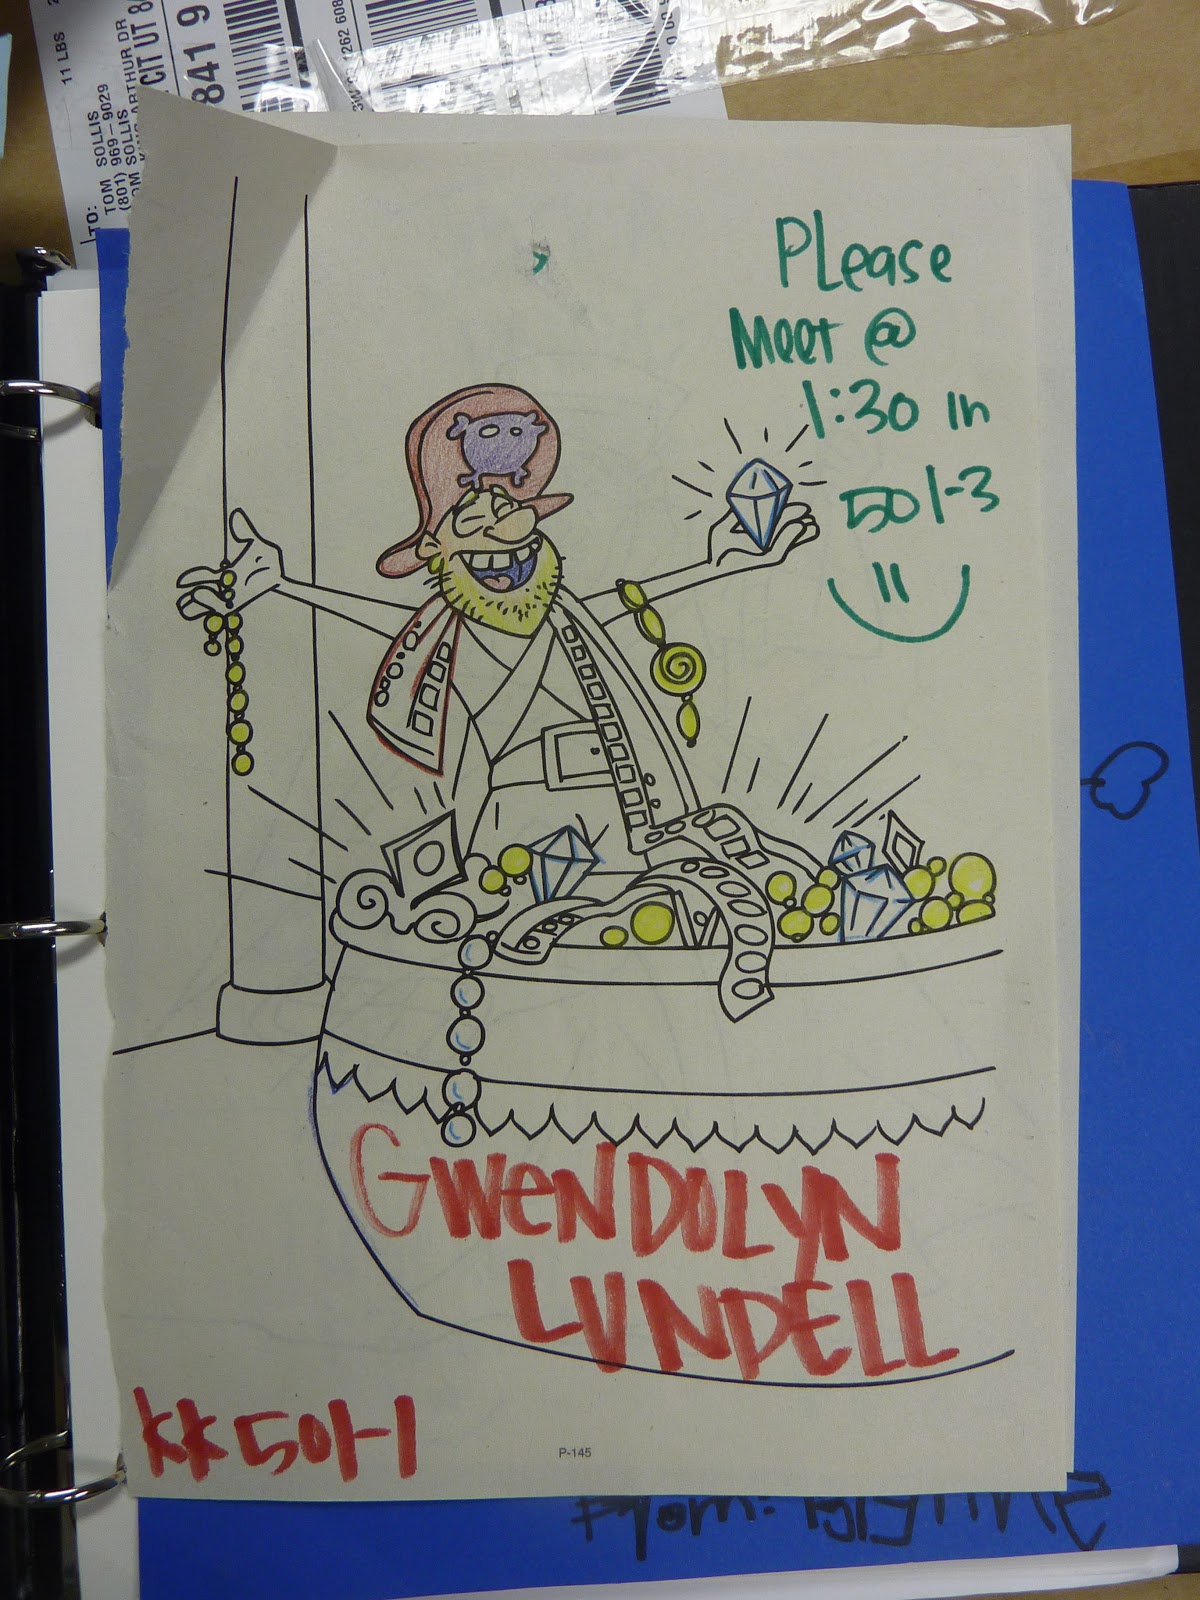 11 LBS
TO:
TOM SOLLIS
(801) 969-9029
OM SOLLIS
ARTHUR DR
CIT UT 84
841 9
1262 608
PLease
Meet @
1:30 in
501-3
GWeNDOLYN
LUNDELL
KK 501-1
P-145